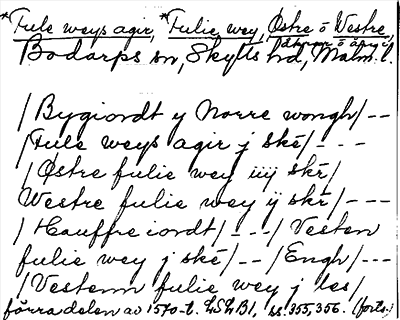 *Fule weys agir, *Fulie wey, Østre o Westre,
Bodarps sn, Skytts hd, Malm. l.
/Bygiordt y Norre wongh/--
/Fule weys agir j ske/---
/Østre fulie wey iiij skr/
Westre fulie wey ij skr/---
/Hauffre iordt/---/Vesten
fulie wey j ske/--/Engh/---
/Vestenn fulie wey j les/
förra delen av 1570-t. LSLB1, ss. 355, 356. (forts.)